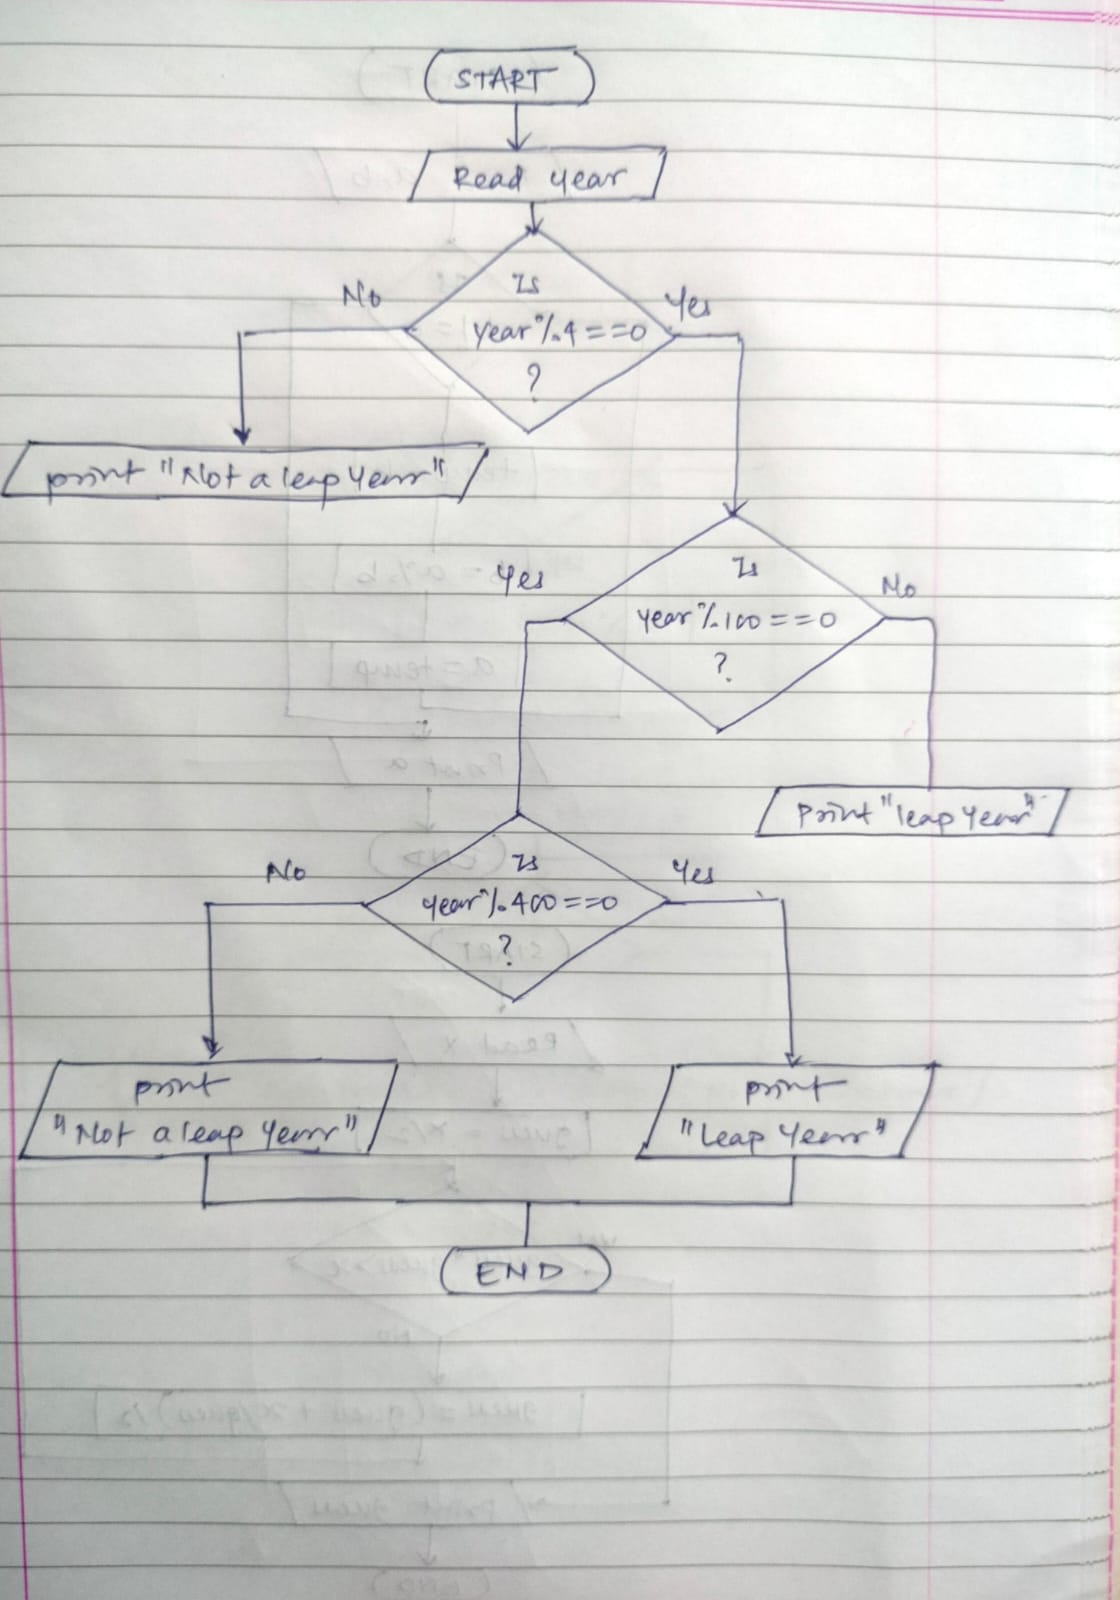 START
Read year
Is
year%4==0
?
No
Yes
print "Not a leap Year"
Is
year%100==0
?
Yes
No
Print "leap Year"
Is
year%400==0
?
No
Yes
print
"Not a leap Year"
print
"Leap Year"
END